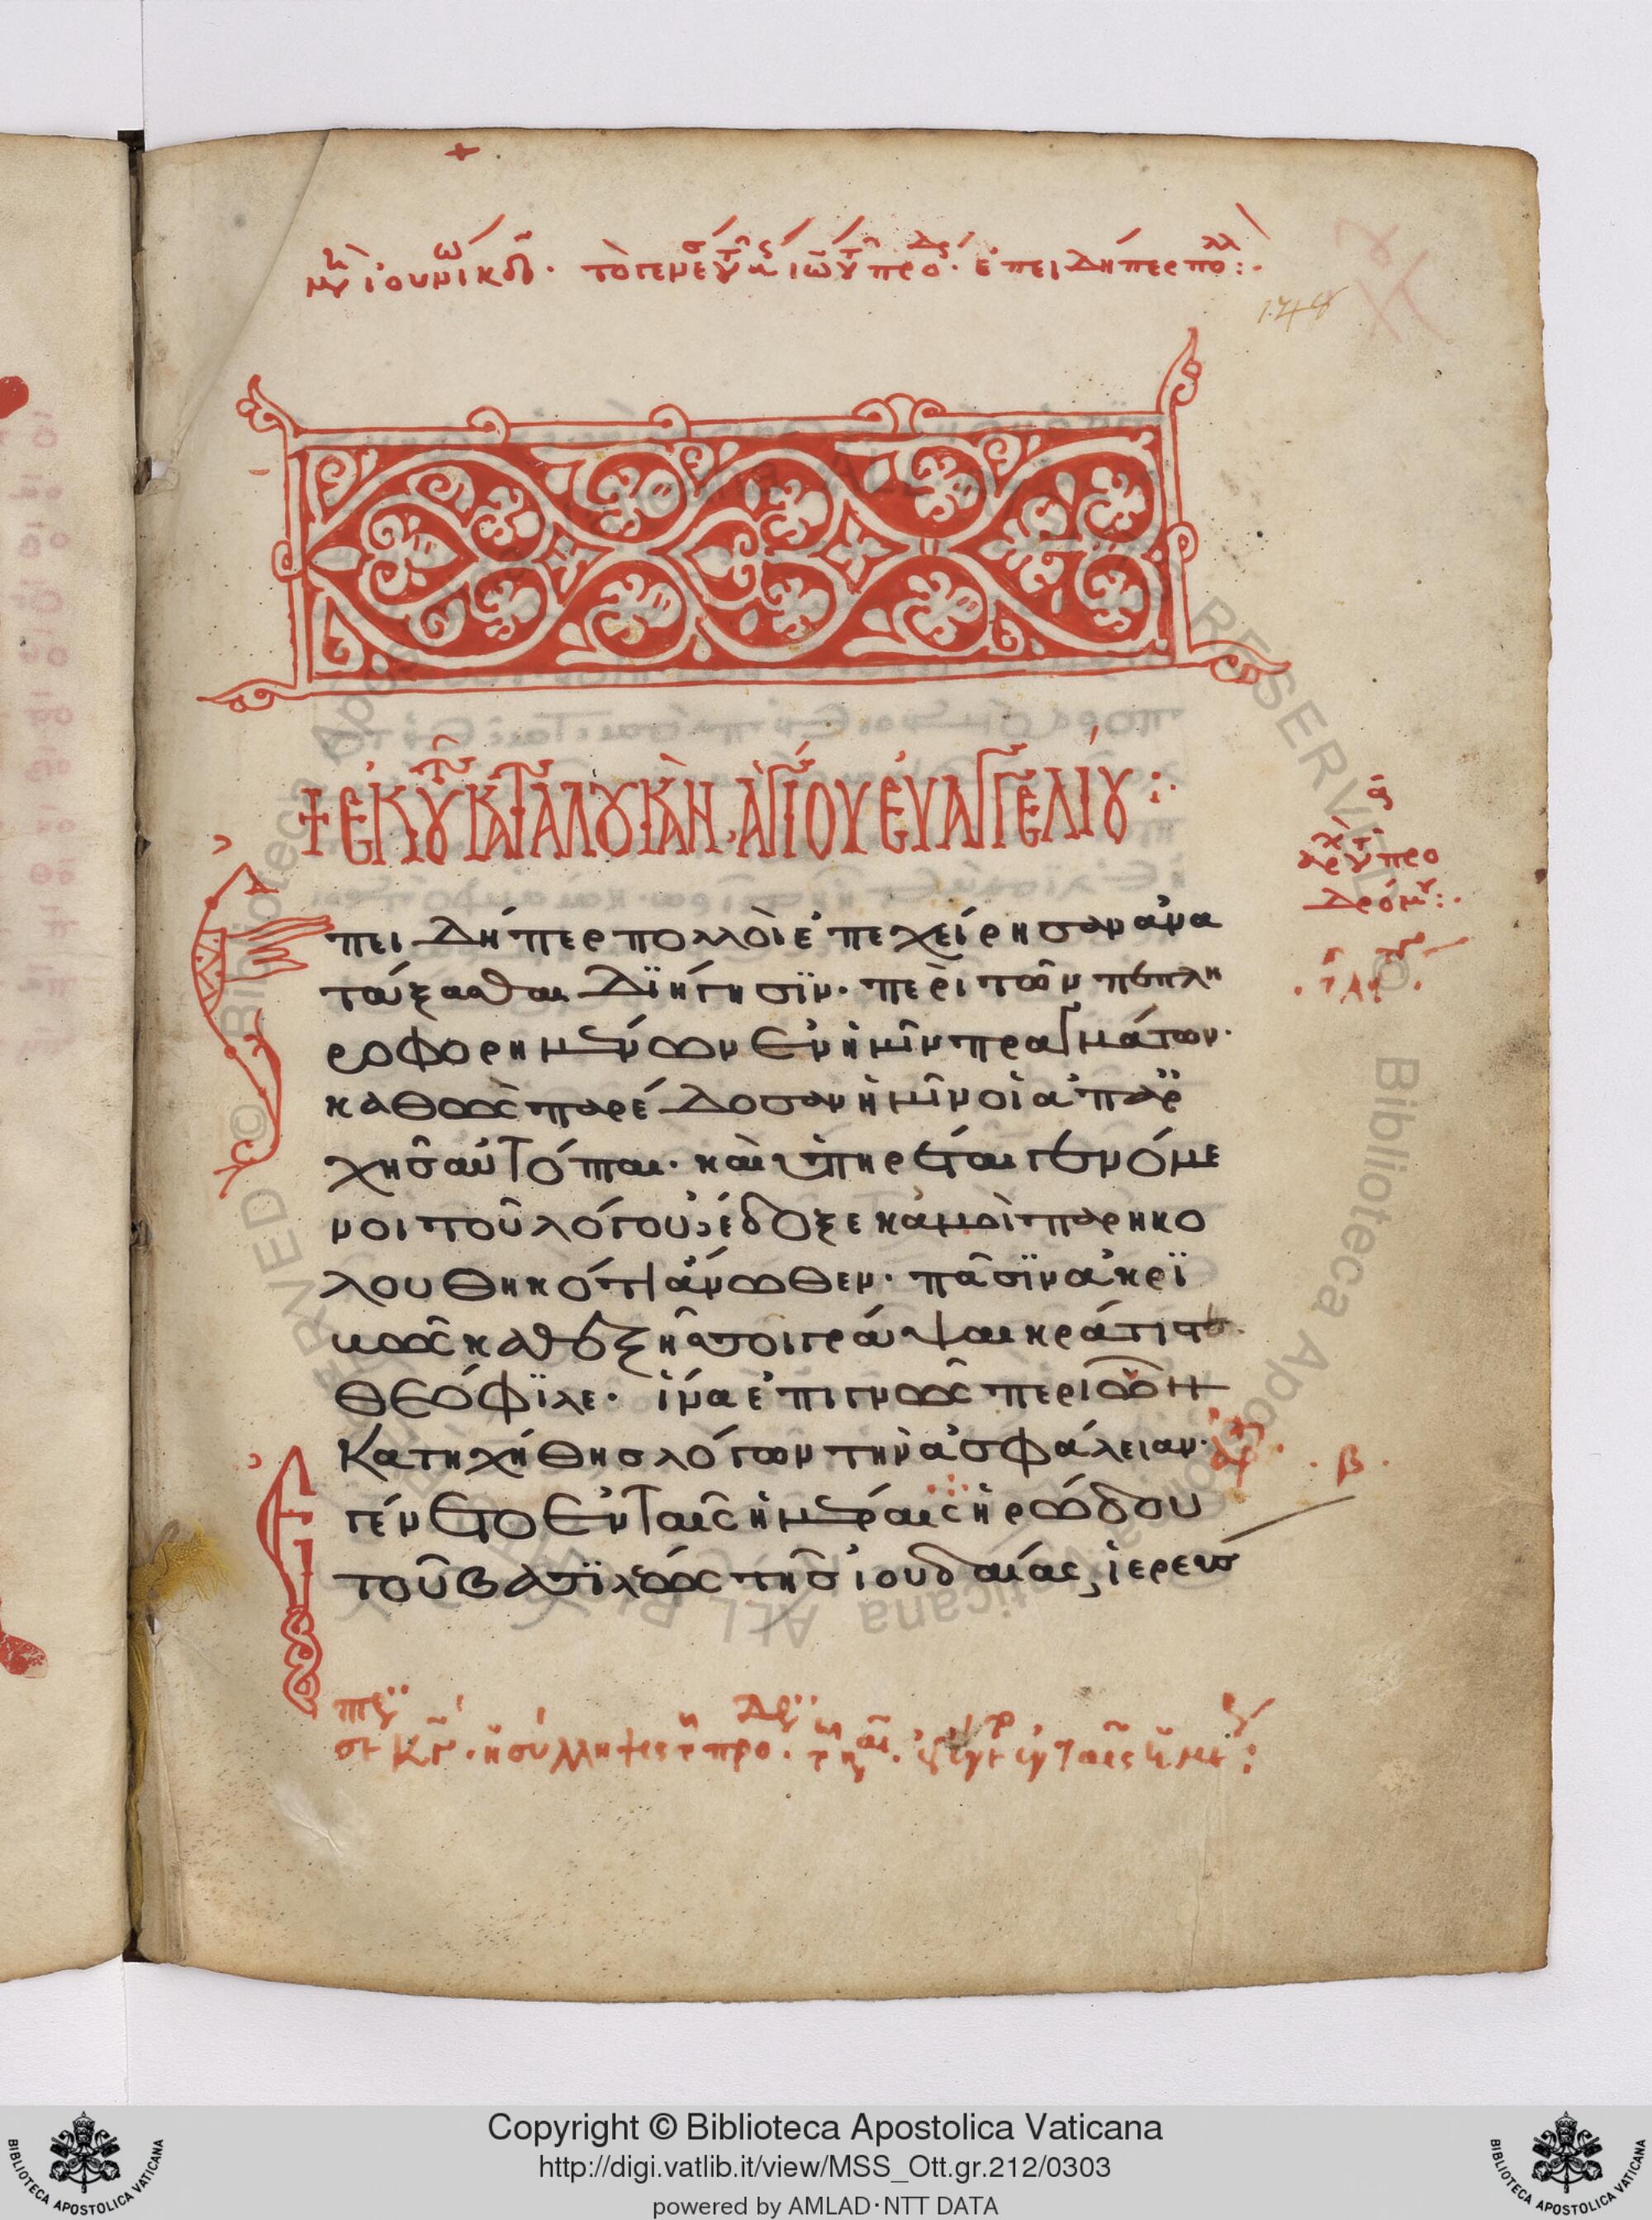 μη ἰουνίω κδ. τὸ γενέσ τ ἁγ ἰω τ προ. ἐπειδήπερ πολλ:.
148
+ ἐκ τοῦ κατὰ λουκὰν ἁγίου εὐαγγελίου:
α
ἀρχ τ προ
δρόμου:.
Ἐπειδήπερ πολλοὶ ἐπεχείρησαν ἀνα
τάξασθαι διήγησϊν. περὶ τῶν πεπλη
ροφορημένων ἐν ἡμῖν πραγμάτων.
καθὼς παρέδοσαν ἡμῖν οἱ ἀπαρ
χῆς αὐτόπται. καὶ ὑπηρέται γενόμε
νοι τοῦ λόγου, ἔδοξε κἀμοὶ παρηκο
λουθηκότι ἄνωθεν. πᾶσϊν ἀκρϊ
βῶς καθεξῆς σοι γράψαι κράτιστε.
θεόφϊλε. ἵνα ἐπιγνῶς περὶ ὧν
κατηχήθης λόγων τὴν ἀσφάλειαν.
ἀρχ
. β .
Ἐγένετο ἐν ταῖς ἡμέραις ἡρώδου
τοῦ βασϊλέως τῆς ἰουδαίας, ἱερεύς
σε κγ. ἡ σύλληψις τ προ. ἐγ ἐν ταῖς ἡμε:
Copyright © Biblioteca Apostolica Vaticana
http://digi.vatlib.it/view/MSS_Ott.gr.212/0303
powered by AMLAD·NTT DATA
BIBLIOTECA APOSTOLICA VATICANA
BIBLIOTECA APOSTOLICA VATICANA